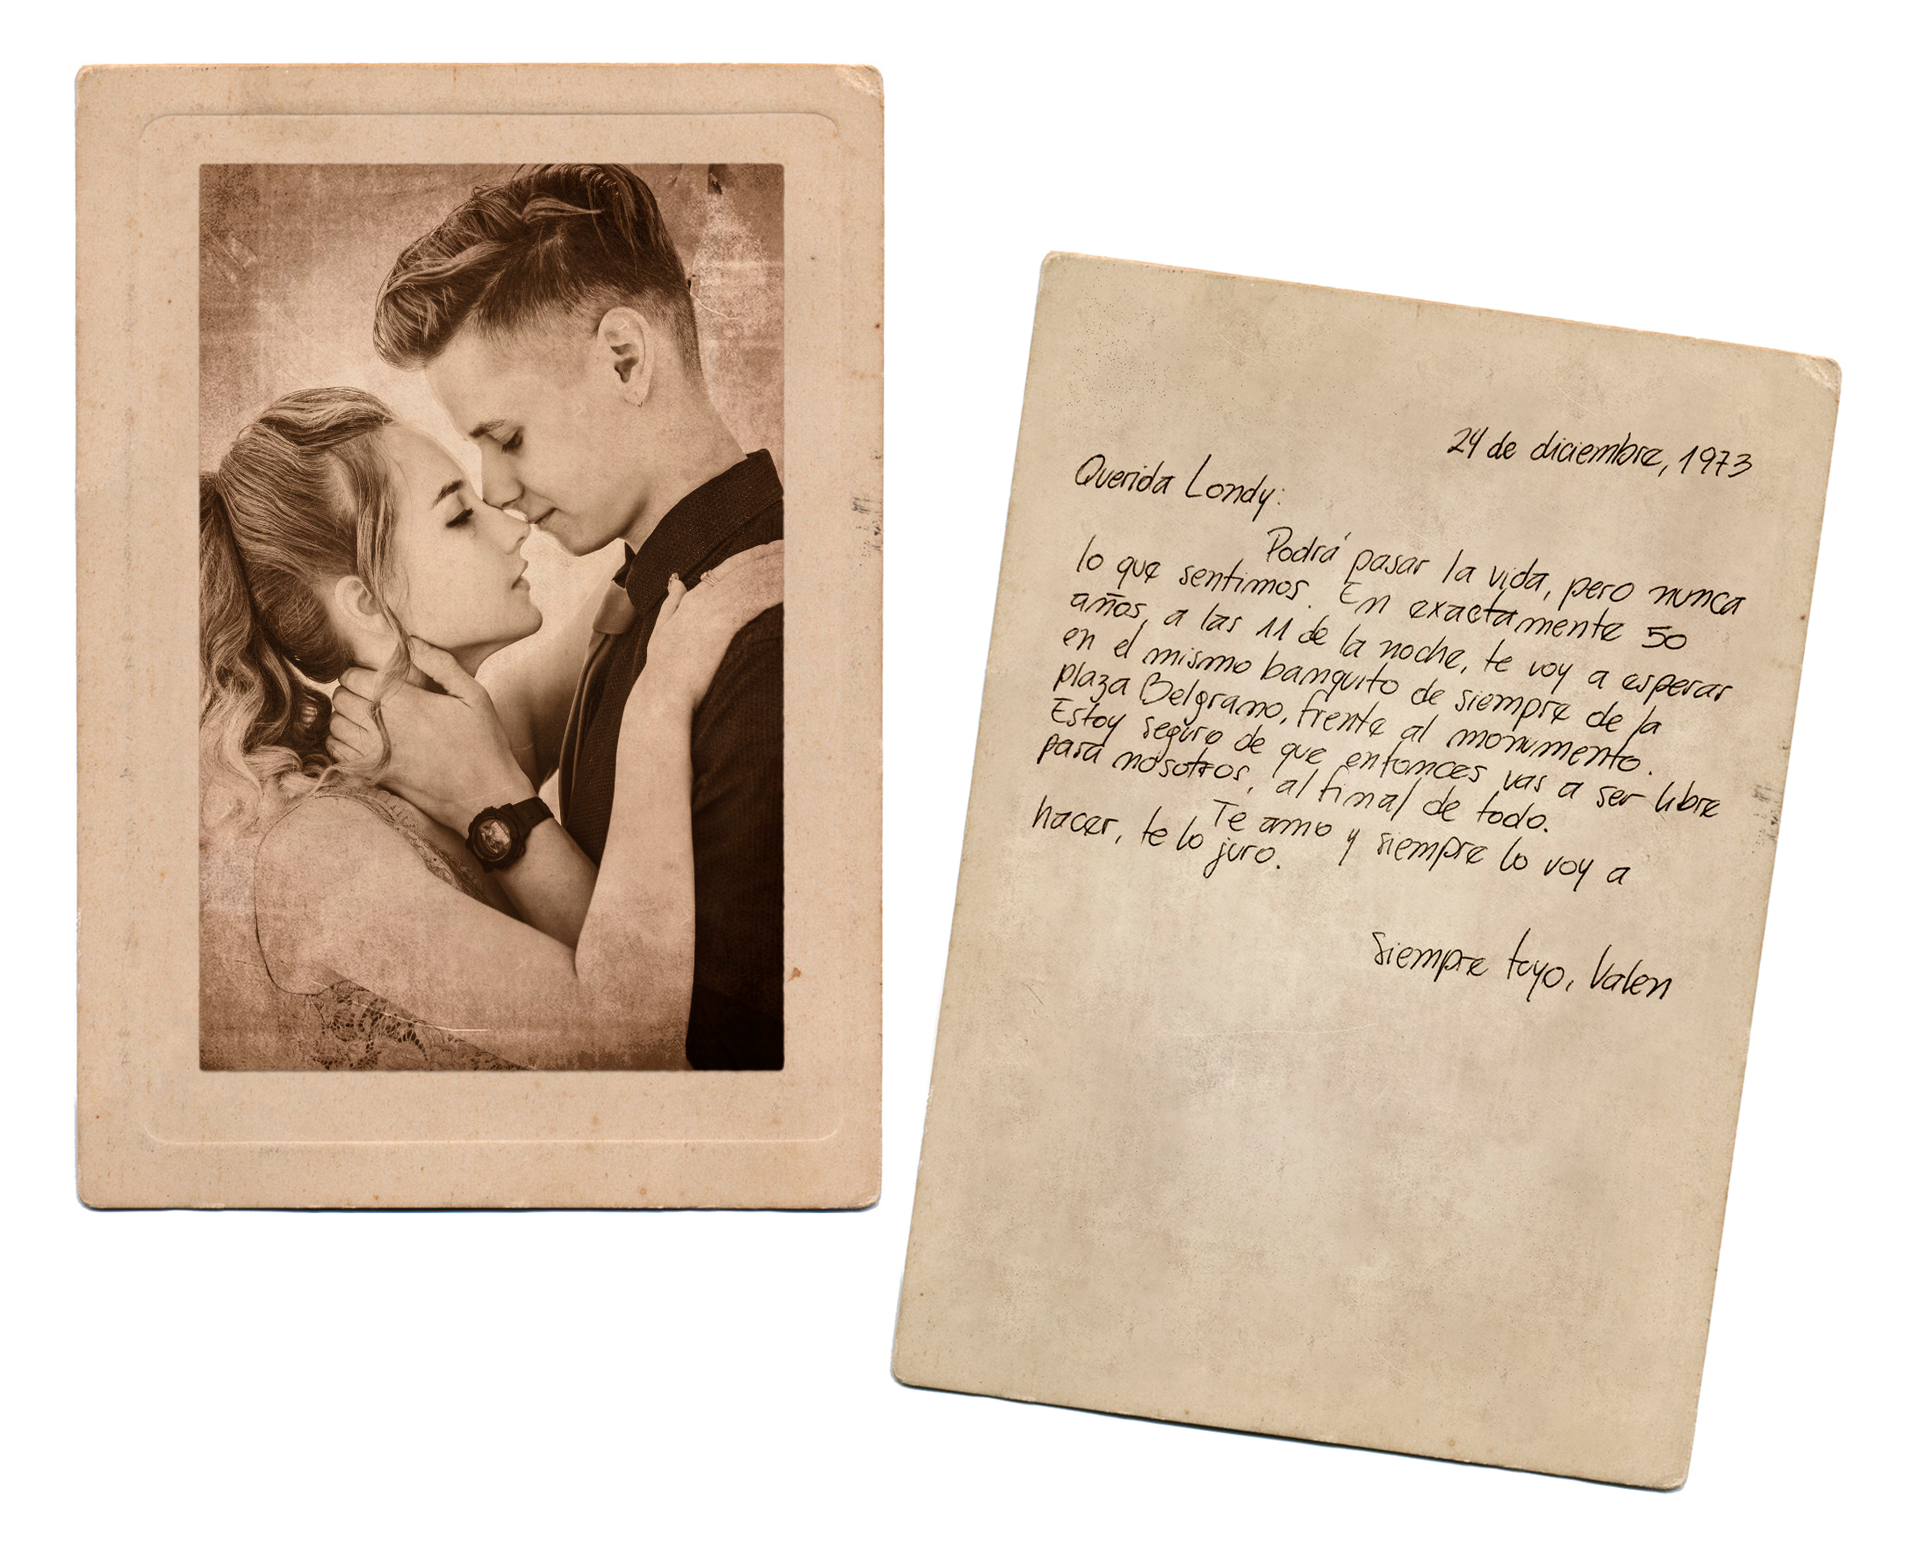 24 de diciembre, 1973
Querida Londy:
Podrá pasar la vida, pero nunca
lo que sentimos. En exactamente 50
años, a las 11 de la noche, te voy a esperar
en el mismo banquito de siempre de la
plaza Belgrano, frente al monumento.
Estoy seguro de que entonces vas a ser libre
para nosotros, al final de todo.
Te amo y siempre lo voy a
hacer, te lo juro.
Siempre tuyo, Valen